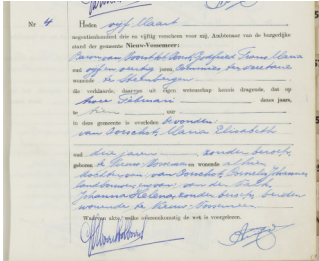 Nr 4
Heden vijf Maart
negentienhonderd drie en vijftig verscheen voor mij, Ambtenaar van de burgerlijke
stand der gemeente Nieuw-Vossemeer:
Frans Maria
oud vijf en veertig jaren, Commies ter secretarie
wonende te Steenbergen
die verklaarde, daarvan uit eigen wetenschap kennis dragende, dat op
Februari dezes jaars,
te tien uur
in deze gemeente is overleden bevonden:
van Dorschot, Maria Elisabeth
oud drie jaren, zonder beroep,
geboren te Nieuw-Vossemeer en wonende alhier
dochter van: van Dorschot, Cornelis Johannes
landbouwer, en van: van der
Johanna Helena, zonder beroep, beiden
wonende te Nieuw-Vossemeer
Waarvan akte, welke overeenkomstig de wet is voorgelezen.